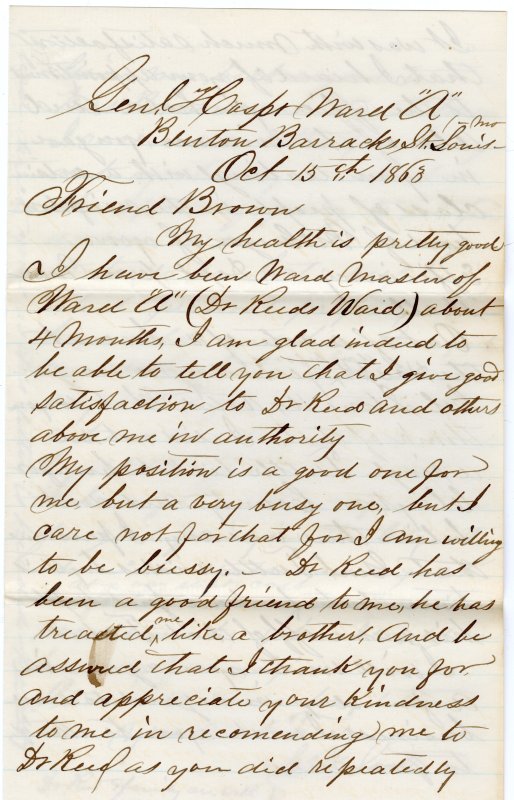 Genl Hospt Ward "A"
Benton Barracks St. Louis - mo
Oct 15th 1863
Friend Brown
My health is pretty good
I have been Ward Master of
Ward "A" (Dr Reeds Ward) about
4 Months, I am glad indeed to
be able to tell you that I give good
satisfaction to Dr Reed and others
above me in authority
My position is a good one for
me but a very busy one, but I
care not for that for I am willing
to be bussy. - Dr Reed has
been a good friend to me, he has
treacted me like a brother. And be
assured that I thank you for
and appreciate your kindness
to me in recomending me to
Dr Reed as you did repeatedly